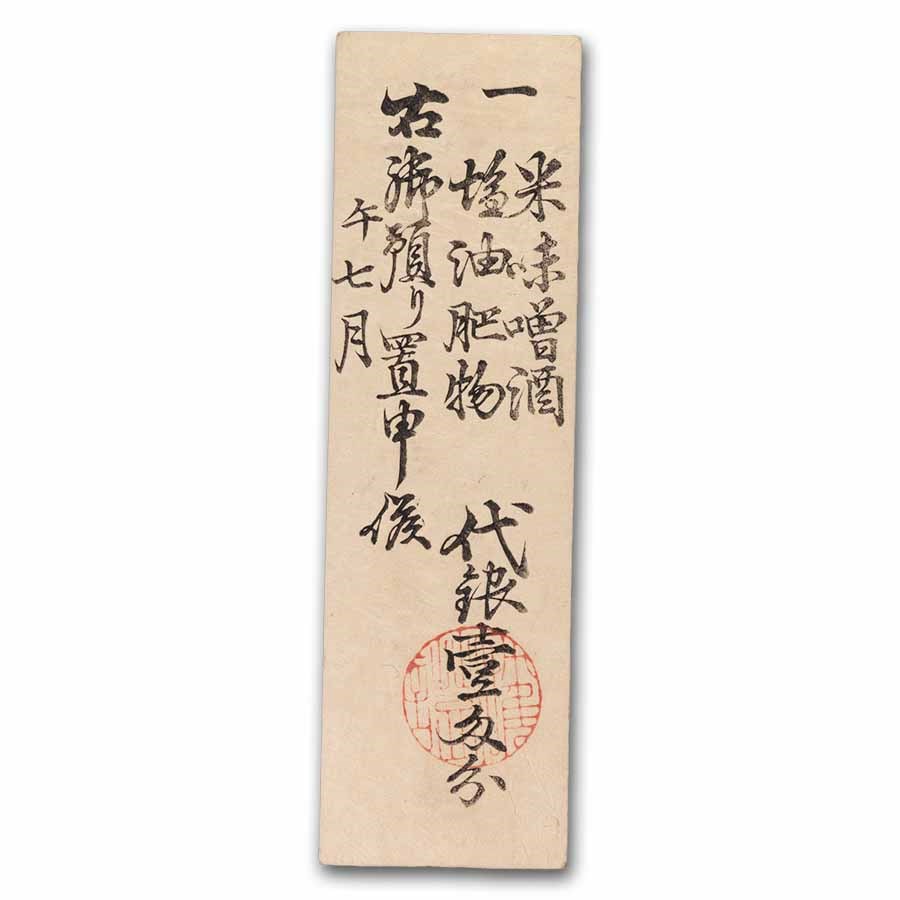 一
米味噌酒
塩油肥物
代銀壹匁分
右御預り置申候
午七月